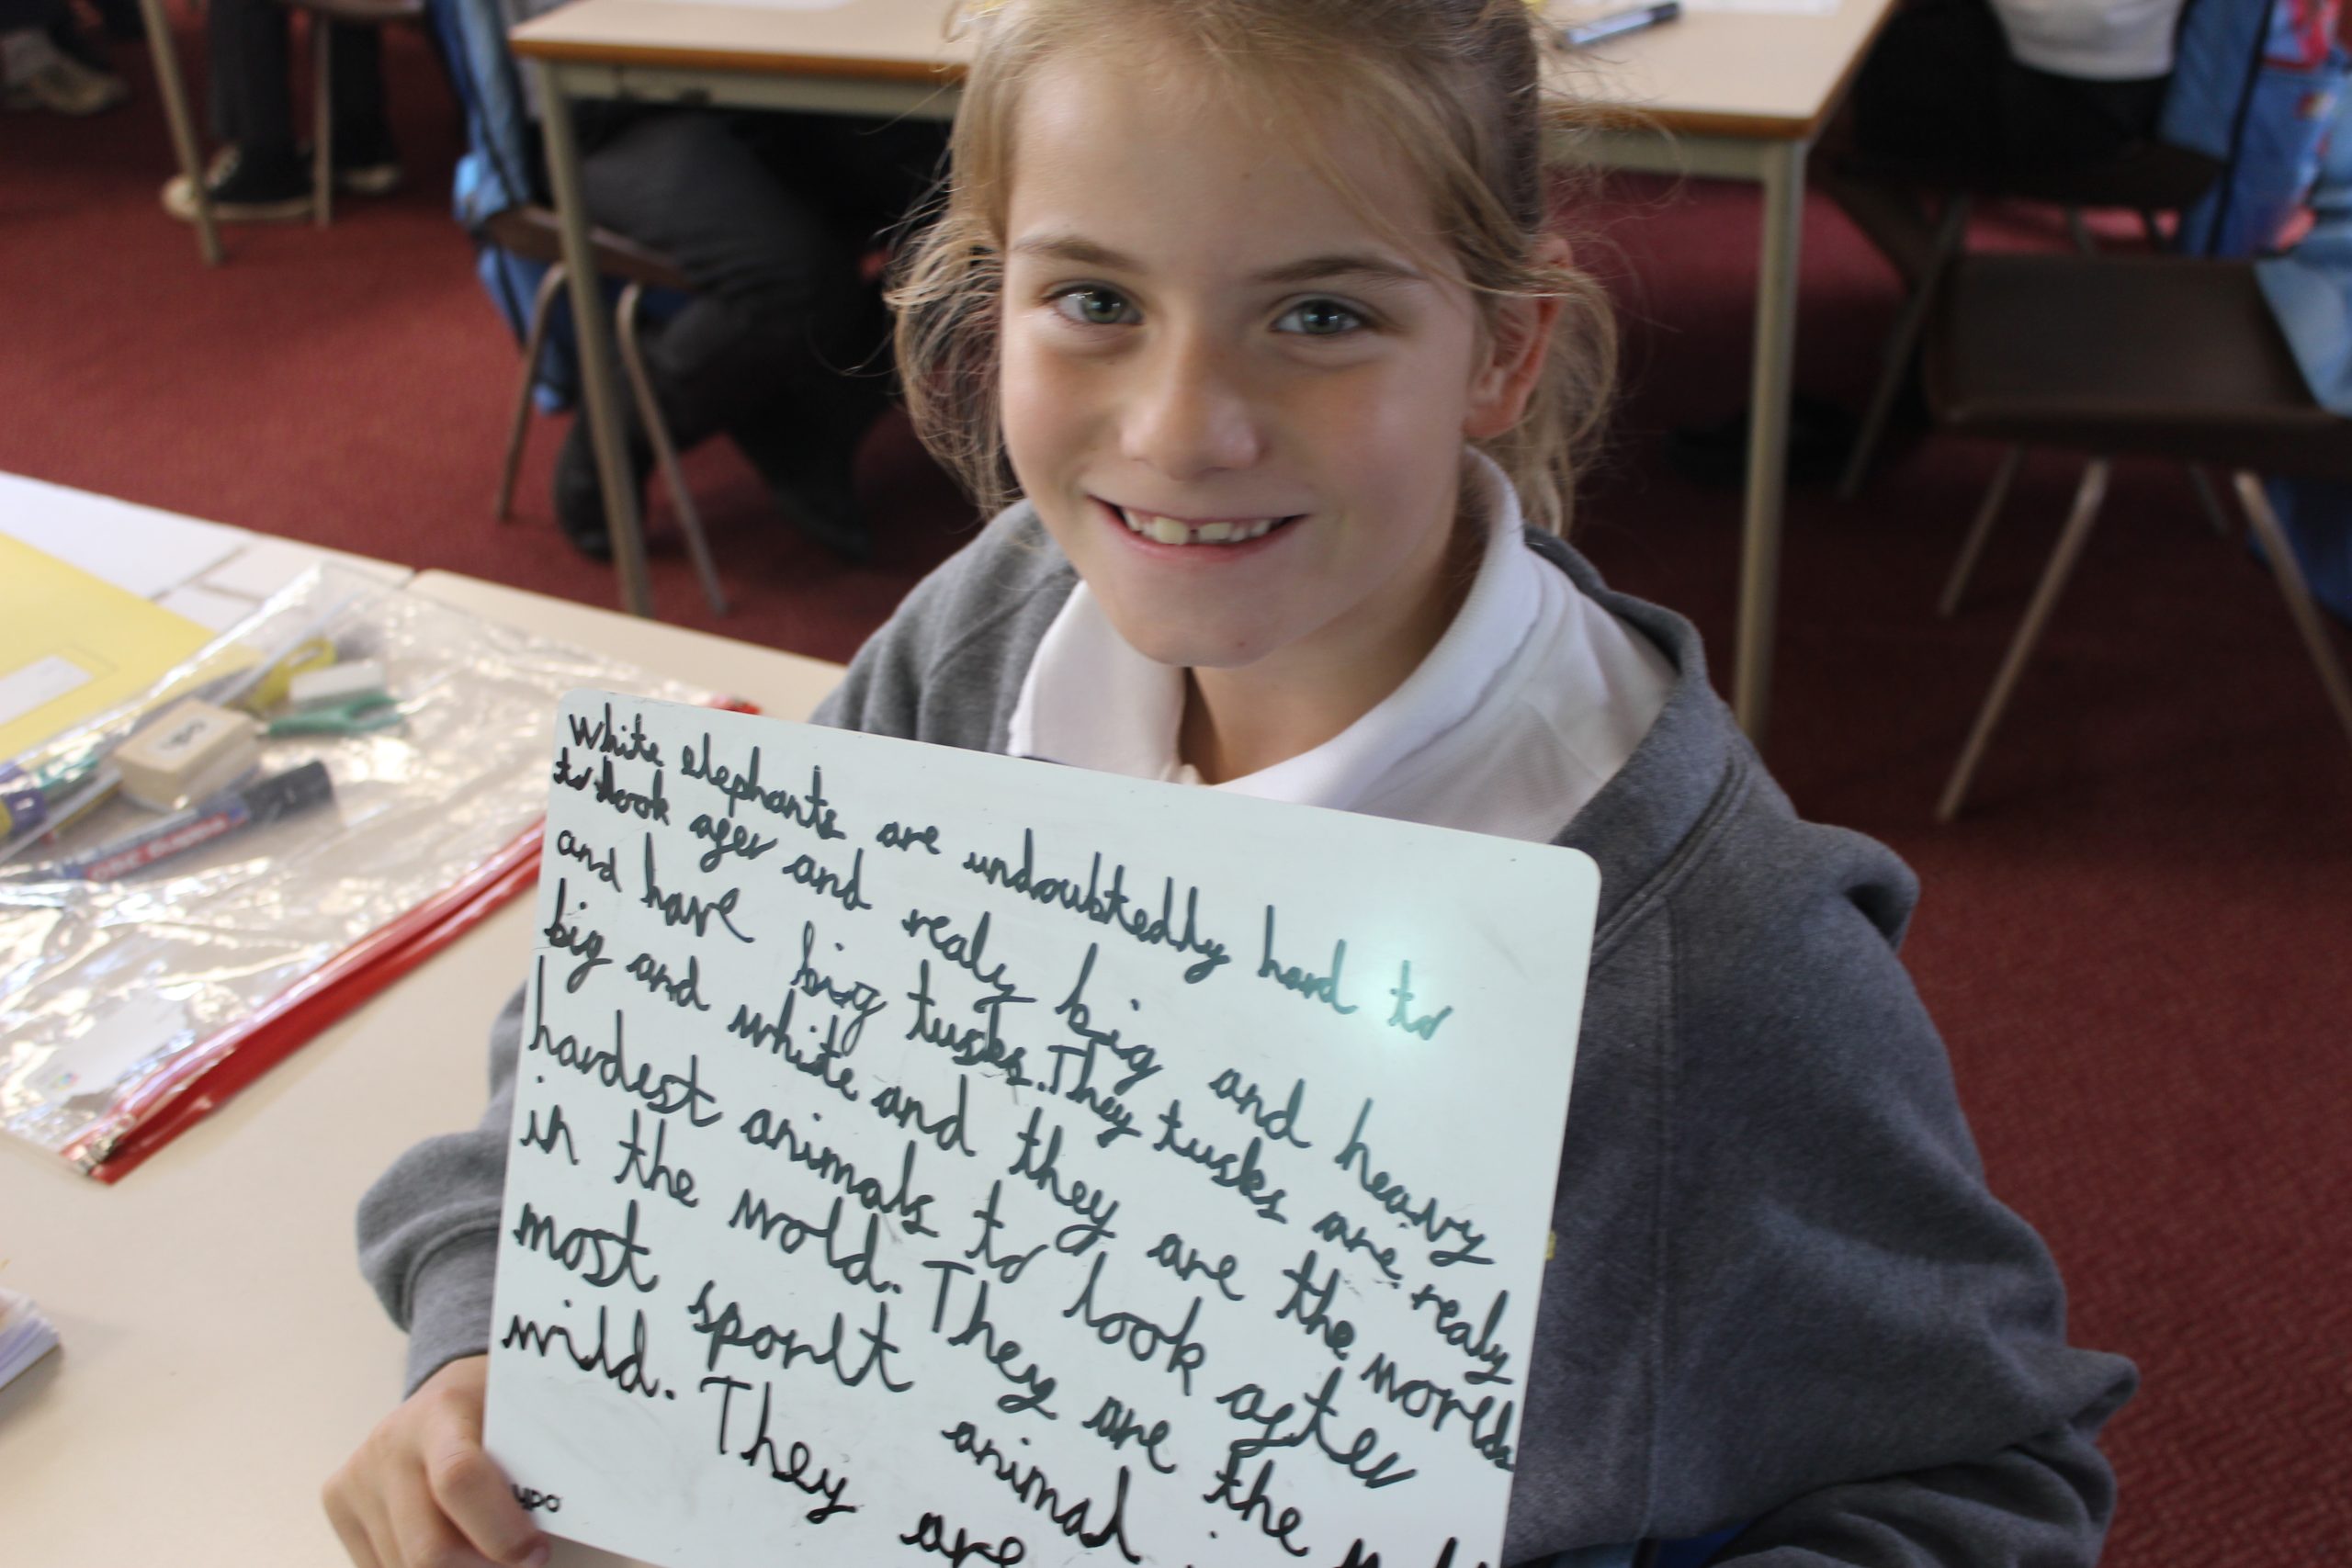 White elephants are undoubtedly hard to
to look ager and realy big and heavy
and have big tusks. They tusks are realy
big and white and they are the worlds
hardest animals to look after
in the wold. They are the
most sporlt animal
wild. They are